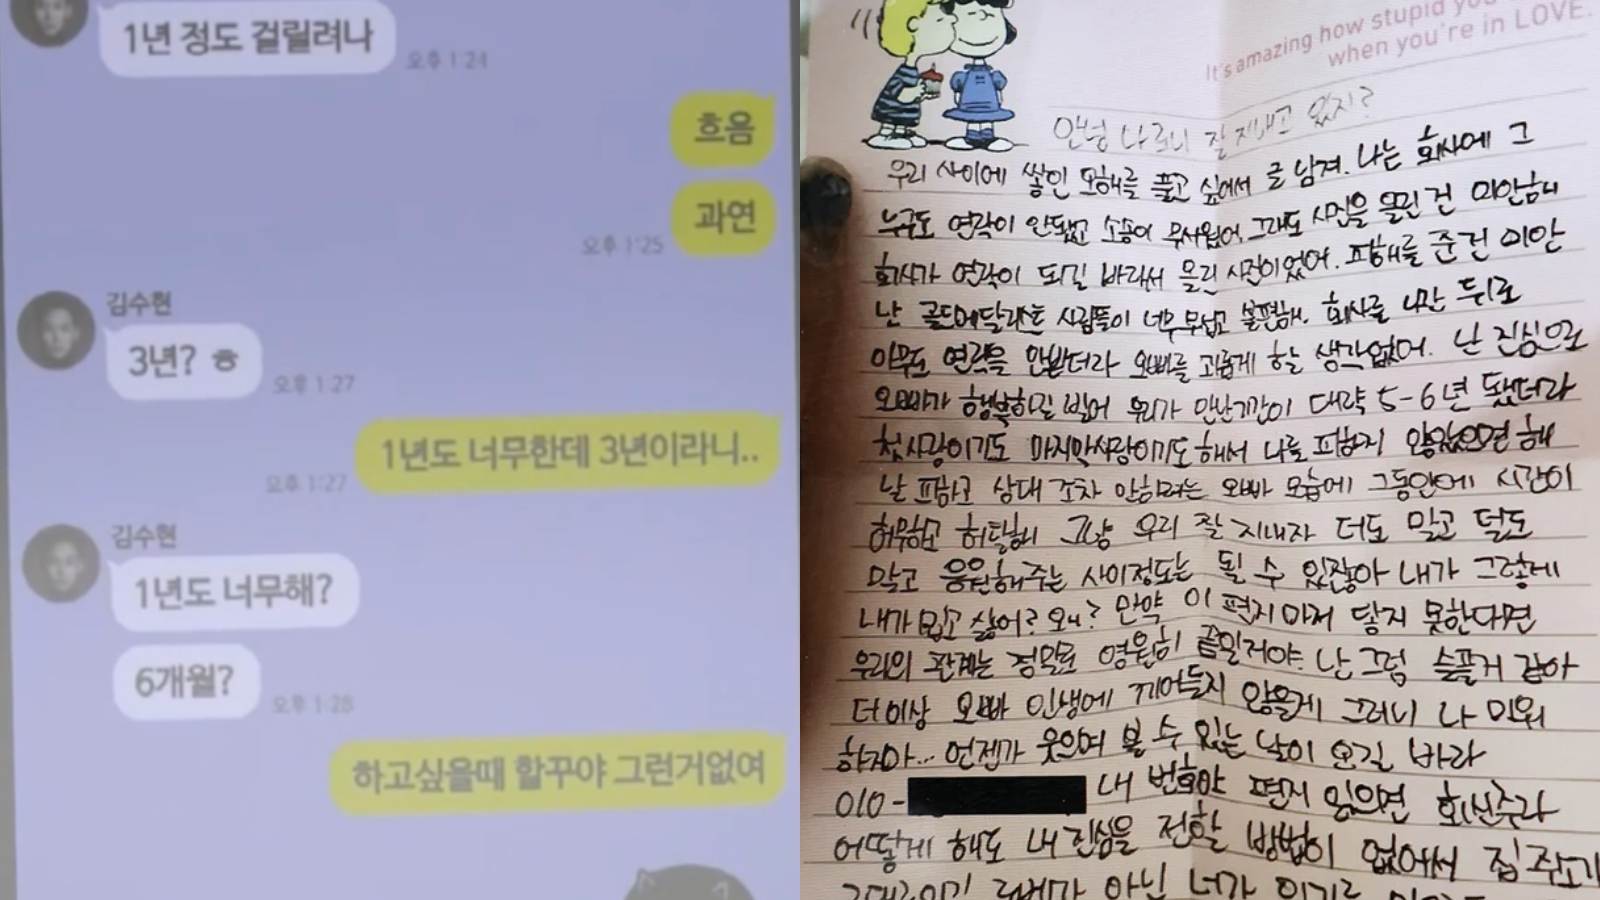 1년 정도 걸릴려나
오후 1:24
흐음
과연
오후 1:25
김수현
3년? ㅎ
오후 1:27
1년도 너무한데 3년이라니..
오후 1:27
김수현
1년도 너무해?
6개월?
오후 1:28
하고싶을때 할꾸야 그런거없여
It's amazing how stupid you
when you're in LOVE.
안녕 나르니 잘 지내고 있지?
우리 사이에 쌓인 오해를 풀고 싶어서 글 남겨. 나는 회사에 그
누구도 연락이 안됐고 소송이 무서웠어. 그래도 사진을 올린 건 미안해
회사가 연락이 되길 바라서 올린 사진이었어. 피해를 준건 미안
난 골드메달리스트 사람들이 너무 무섭고 불편해. 회사를 나간 뒤로
아무도 연락을 안받더라 오빠를 괴롭게 할 생각없어. 난 진심으로
오빠가 행복하길 빌어 우리가 만난기간이 대략 5-6년 됐더라
첫사랑이기도 마지막사랑이기도 해서 나를 피하지 않았으면 해
날 피하고 상대 조차 안하려는 오빠 모습에 그동안에 시간이
허무하고 허탈해 그냥 우리 잘 지내자 더도 말고 덜도
말고 응원해주는 사이정도는 될 수 있잖아 내가 그렇게
내가 밉고 싫어? 왜? 만약 이 편지마저 닿지 못한다면
우리의 관계는 정말로 영원히 끝일거야. 난 그럼 슬플거 같아
더이상 오빠 인생에 끼어들지 않을게 그러니 나 미워
하지마... 언젠가 웃으며 볼 수 있는 날이 오길 바라
010- 내 번호야 편지 읽으면 회신주라
어떻게 해도 내 진심을 전할 방법이 없어서 집주소